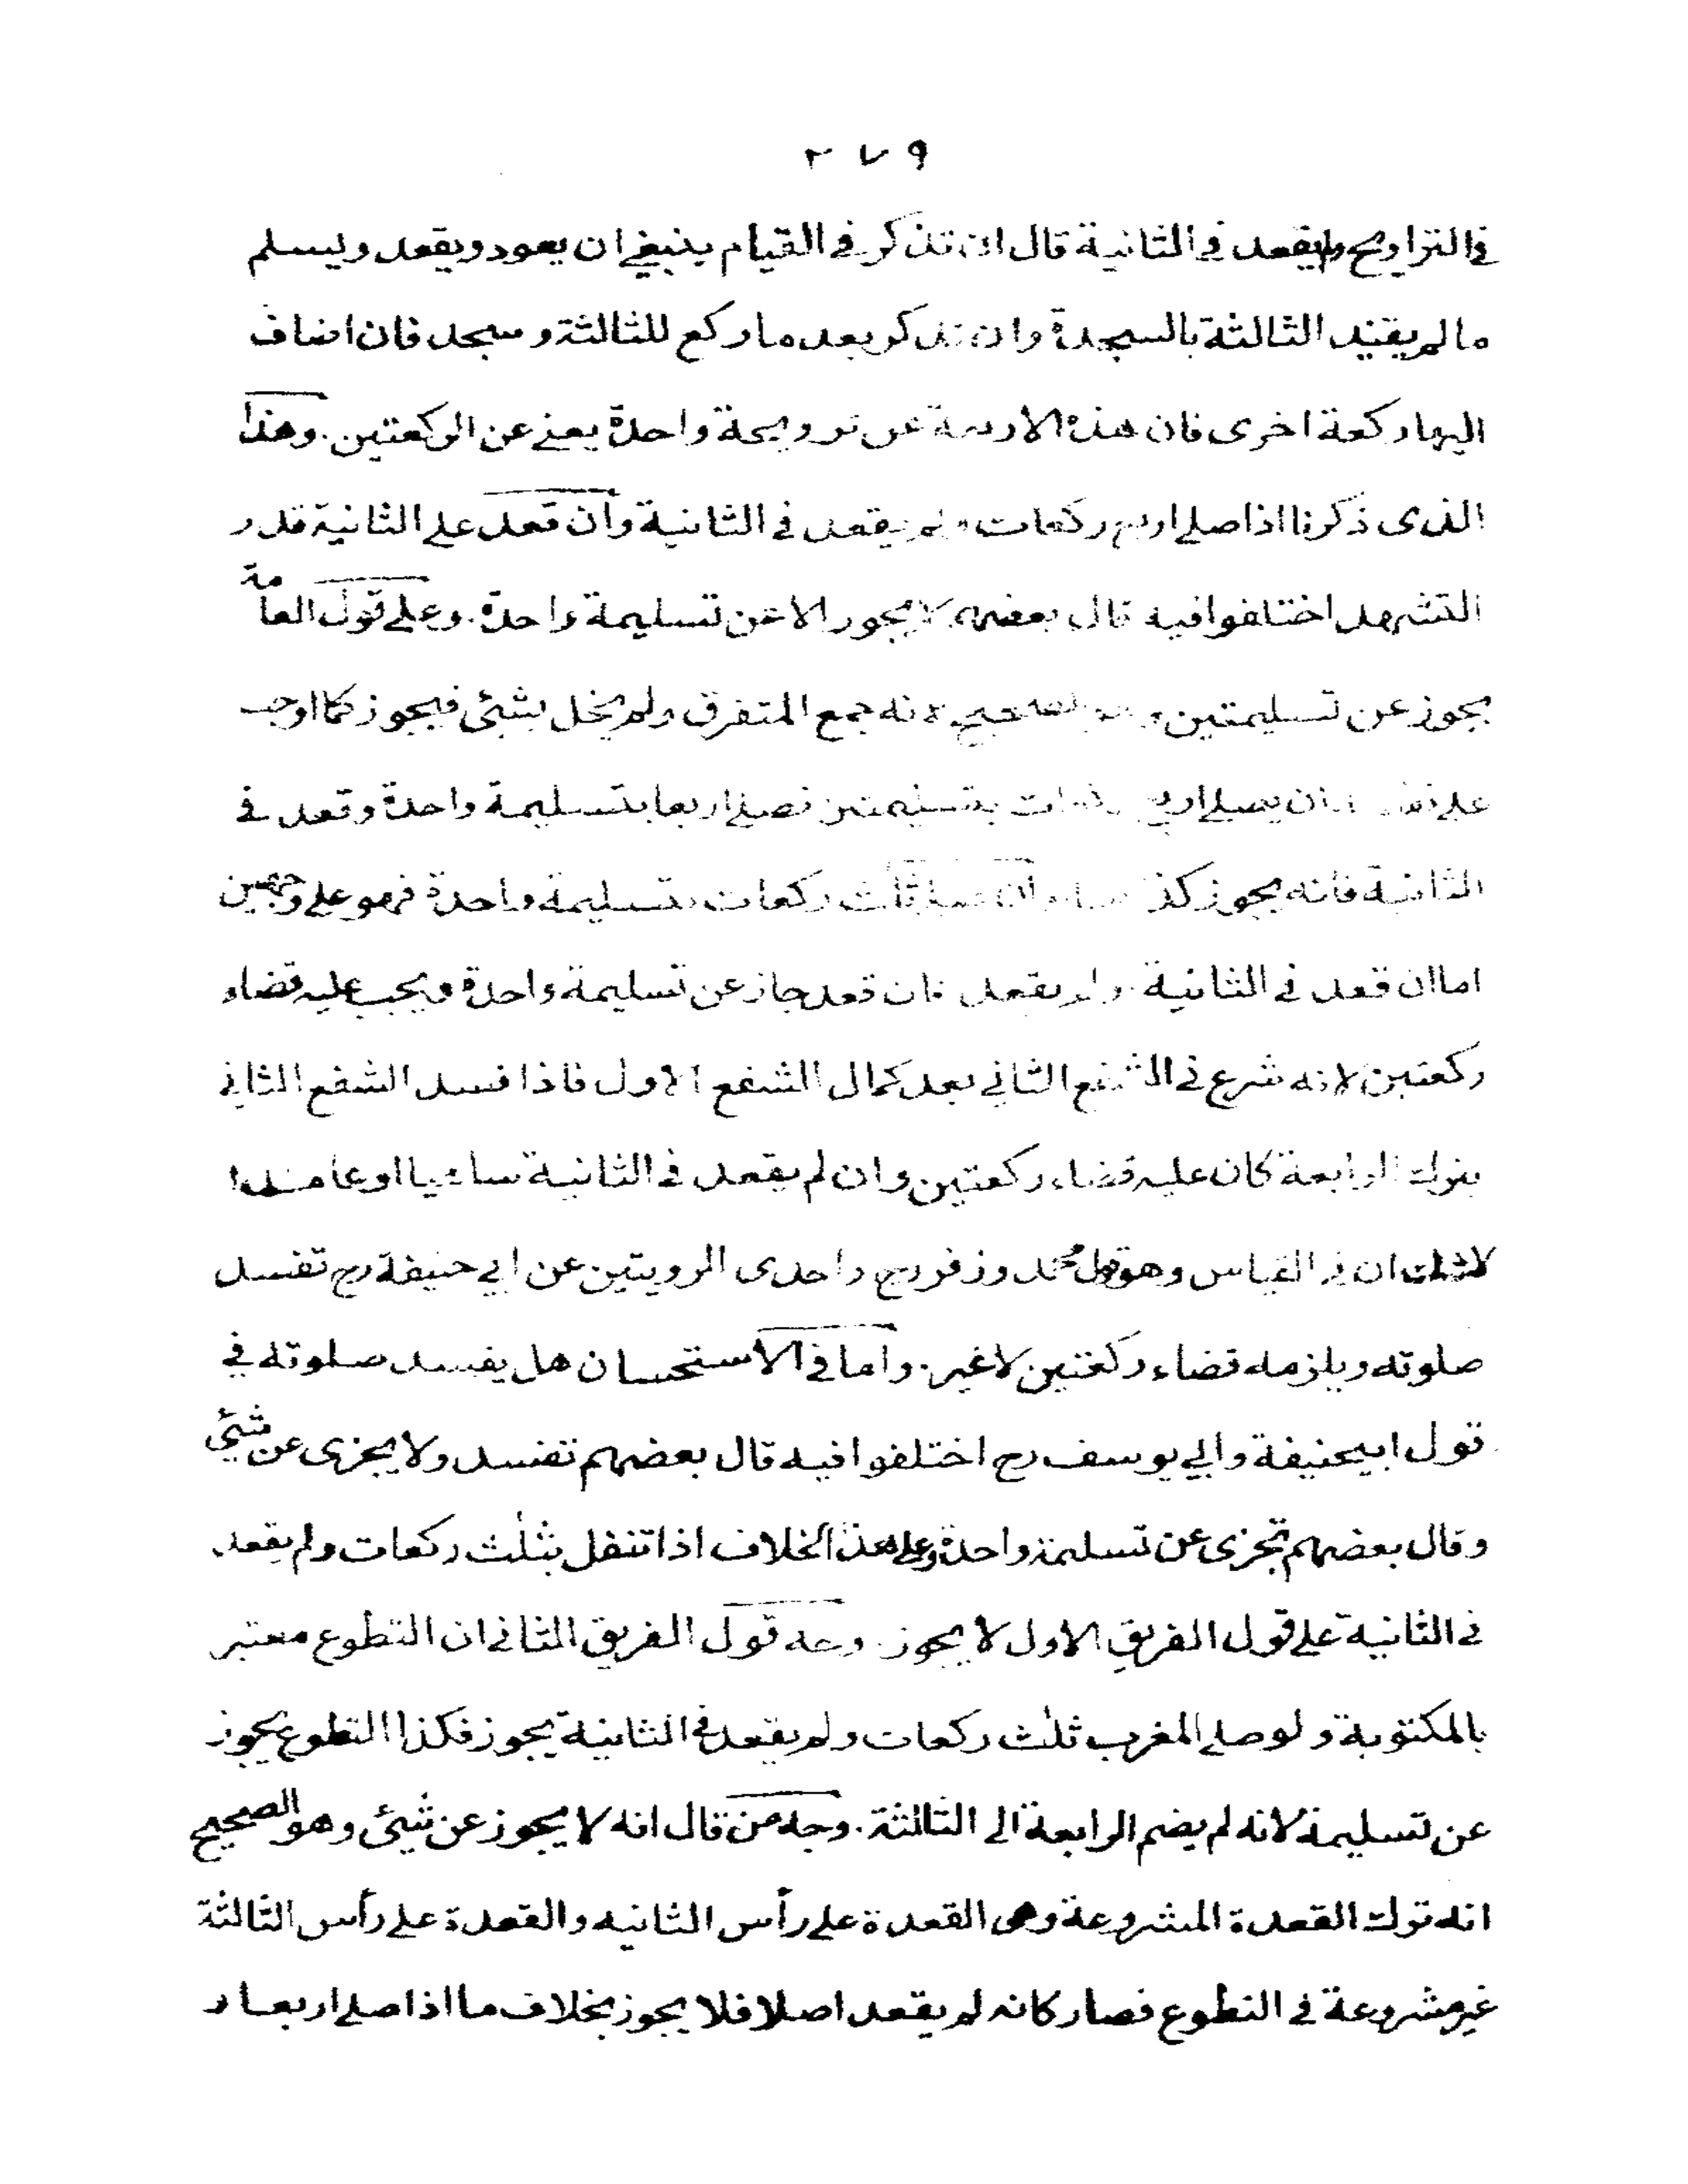 ٢٧٩
في التراويح ولم يقعد في الثانية قال ان تذكر في القيام ينبغي ان يعود ويقعد ويسلم
مالم يقيّد الثالثة بالسجدة وان تذكر بعد ما ركع للثالثة وسجد فان اضاف
اليها ركعة اخرى فان هذه الاربعة عن ترويحة واحدة يعني عن الركعتين. وهذا
الذى ذكرنا اذا صلے اربع ركعات ولم يقعد في الثانية وان قعد علے الثانية قدر
التشهد اختلفوا فيه قال بعضهم لا يجوز الا عن تسليمة واحدة. وعلے قول العامة
يجوز عن تسليمتين وهو الصحيح لانه جمع المتفرق ولم يخل بشئ فيجوز كما اوجب
علے ان يصلے اربع ركعات بتسليمتين فصلے اربعا بتسليمة واحدة وقعد في
الثانية فانه يجوز كذ وان صلے ثلٰث ركعات بتسليمة واحدة فهو علے وجهين
اما ان قعد في الثانية او لم يقعد فان قعد جاز عن تسليمة واحدة ويجب عليه قضاء
ركعتين لانه شرع في الشفع الثاني بعد كمال الشفع الاول فاذا فسد الشفع الثاني
بترك الرابعة كان عليه قضاء ركعتين وان لم يقعد في الثانية ساهيا او عامدا
لاشك ان في القياس وهو قول محمد وزفر رح واحدى الرويتين عن ابي حنيفة رح تفسد
صلوته ويلزمه قضاء ركعتين لاغير. واما في الاستحسان هل يفسد صلوته في
قول ابيحنيفة وابي يوسف رح اختلفوا فيه قال بعضهم تفسد ولا يجزى عن شئ
وقال بعضهم تجزى عن تسليمة واحدة وعلے هذا الخلاف اذا تنفل بثلٰث ركعات ولم يقعد
في الثانية علے قول الفريق الاول لا يجوز. وجه قول الفريق الثاني ان التطوع معتبر
بالمكتوبة ولو صلے المغرب ثلٰث ركعات ولم يقعد في الثانية يجوز فكذا التطوع يجوز
عن تسليمة لانه لم يضم الرابعة الى الثالثة. وجه من قال انه لا يجوز عن شئ وهو الصحيح
انه ترك القعدة المشروعة وهى القعدة علے رأس الثانيه والقعدة علے رأس الثالثة
غير مشروعة في التطوع فصار كانه لم يقعد اصلا فلا يجوز بخلاف ما اذا صلے اربعا و